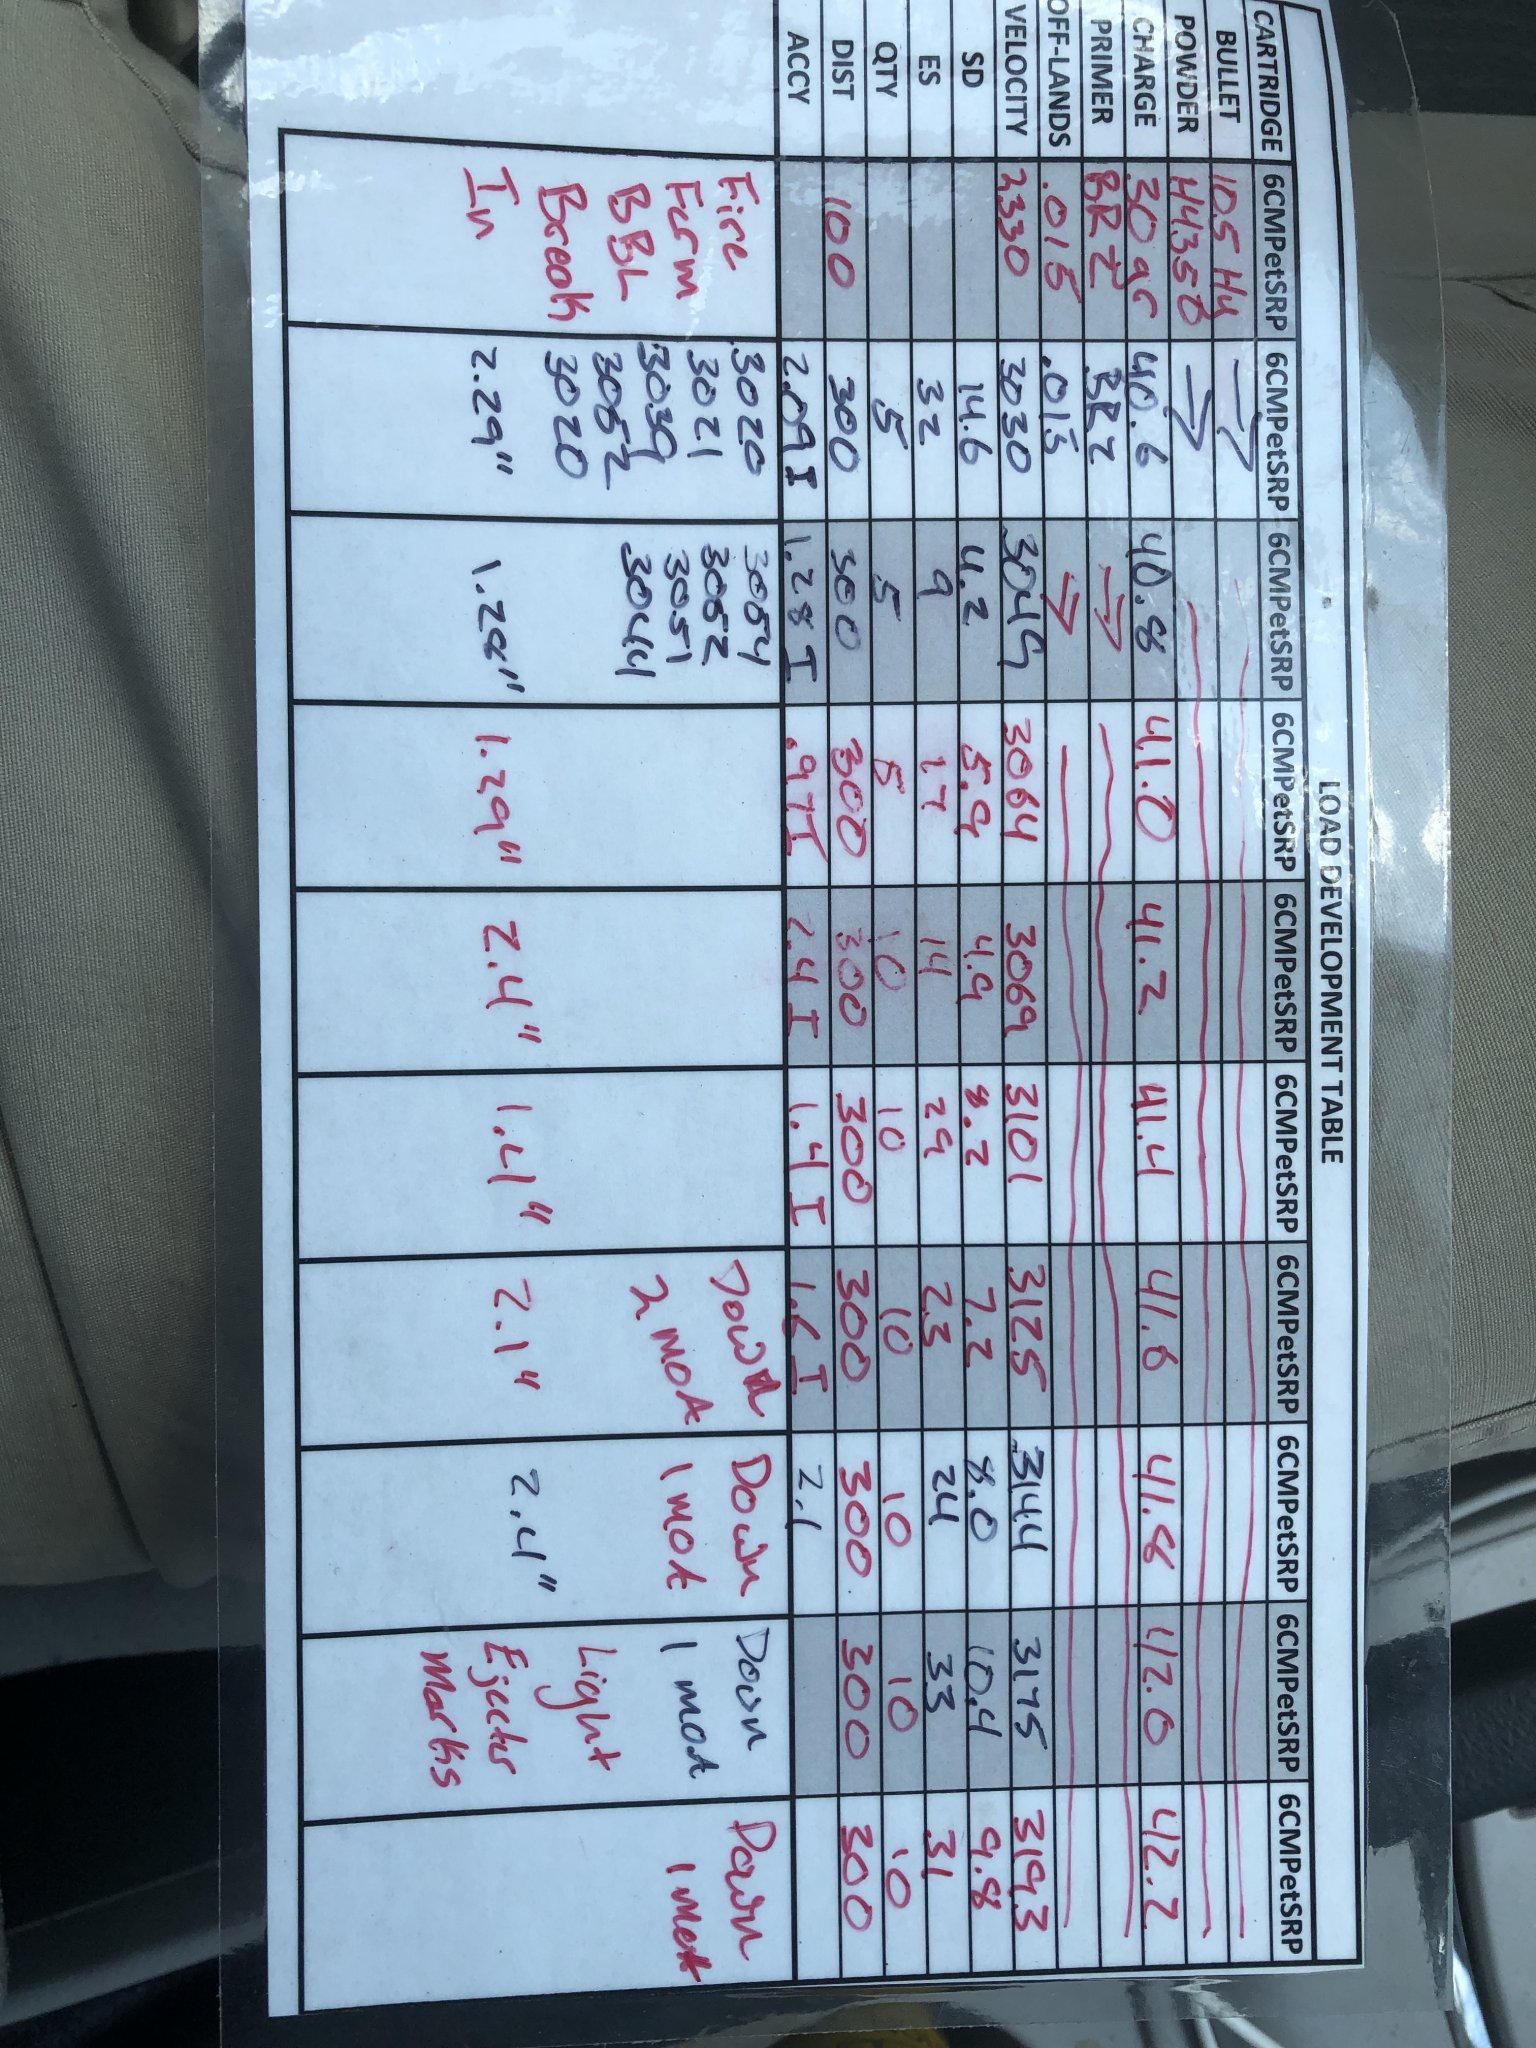 LOAD DEVELOPMENT TABLE
CARTRIDGE 6CMPetSRP 6CMPetSRP 6CMPetSRP 6CMPetSRP 6CMPetSRP 6CMPetSRP 6CMPetSRP 6CMPetSRP 6CMPetSRP 6CMPetSRP
BULLET 105 Hy →
POWDER H4350 →
CHARGE 30 gr 40.6 40.8 41.0 41.2 41.4 41.6 41.8 42.0 42.2
PRIMER BR2 BR2 →
OFF-LANDS .015 .015 →
VELOCITY 2330 3030 3049 3064 3069 3101 3125 3144 3175 3193
SD 14.6 4.2 5.9 4.9 8.2 7.2 8.0 10.4 9.8
ES 32 9 17 14 29 23 24 33 31
QTY 5 5 5 10 10 10 10 10 10
DIST 100 300 300 300 300 300 300 300 300 300
ACCY 2.09 I 1.28 I .97 I 2.4 I 1.4 I 1.6 I 2.1
Fire 3020 3054 Down Down Down Down
Form 3021 3052 2 MOA 1 MOA 1 MOA 1 MOA
BBL 3039 3051 Light
Break 3052 3044 Ejector
In 3020 Marks
2.29" 1.28" 1.29" 2.4" 1.4" 2.1" 2.4"